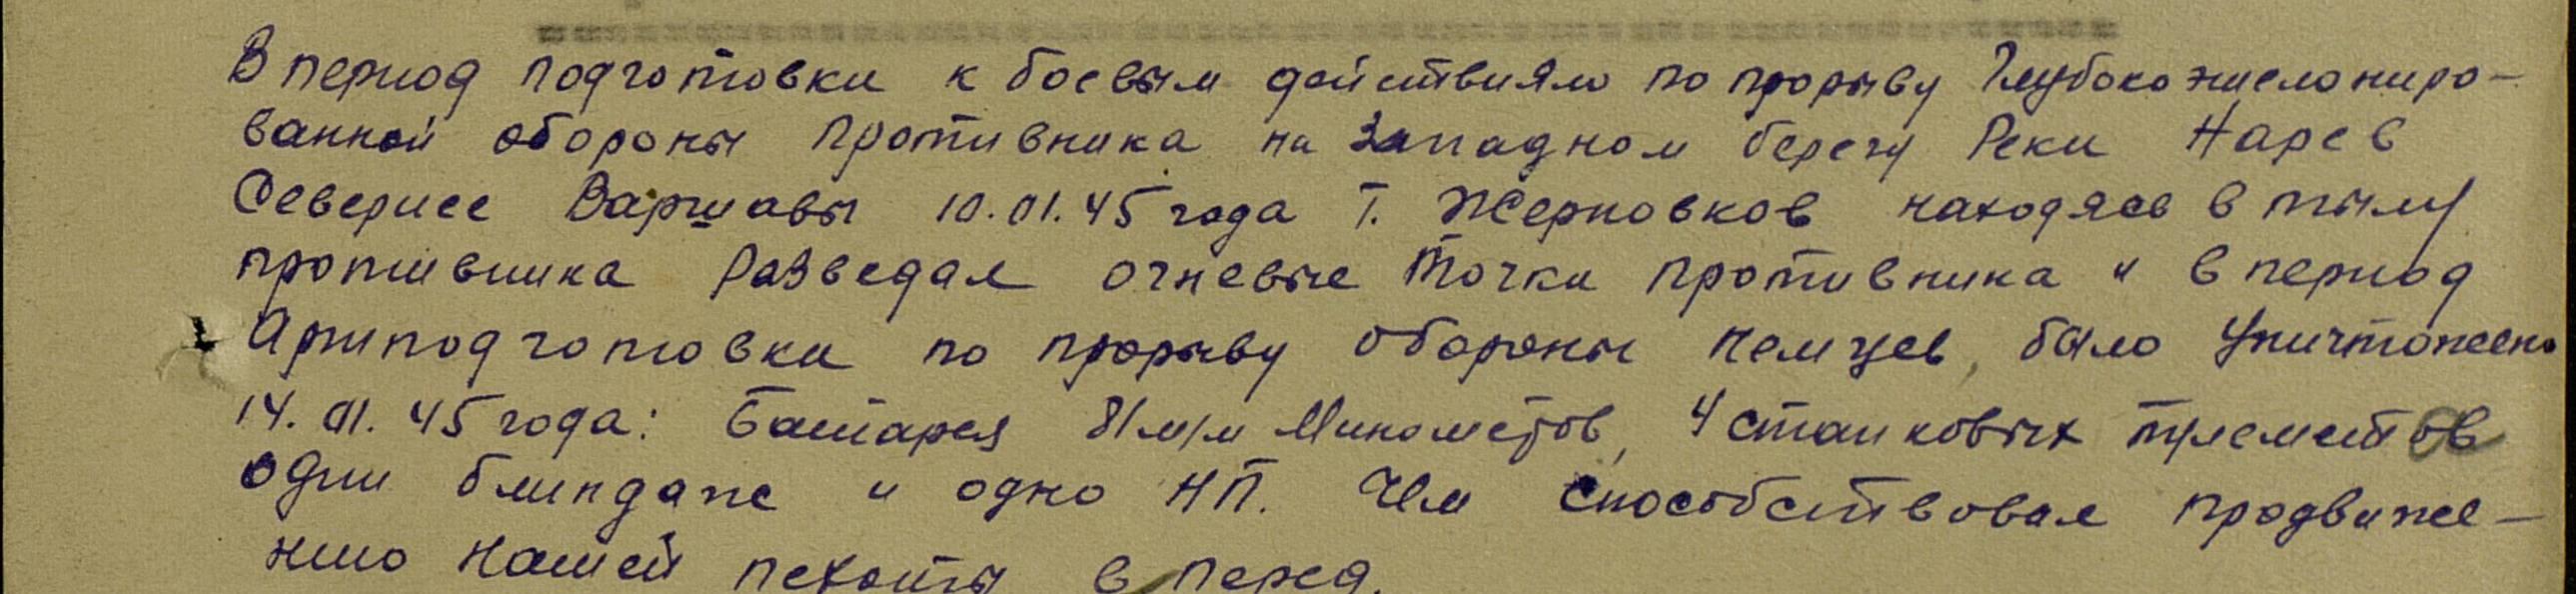 В период подготовки к боевым действиям по прорыву Глубоко эшелониро-
ванной обороны противника на Западном берегу Реки Нарев
Севернее Варшавы 10.01.45 года т. Жерновков находясь в тылу
противника Разведал огневые точки противника и в период
Артподготовки по прорыву обороны немцев, было Уничтожено
14.01.45 года: Батарея 81 м/м Минометов, 4 станковых пулеметов
один блиндаж и одно НП. Чем способствовал продвиже-
нию нашей пехоты в перед.